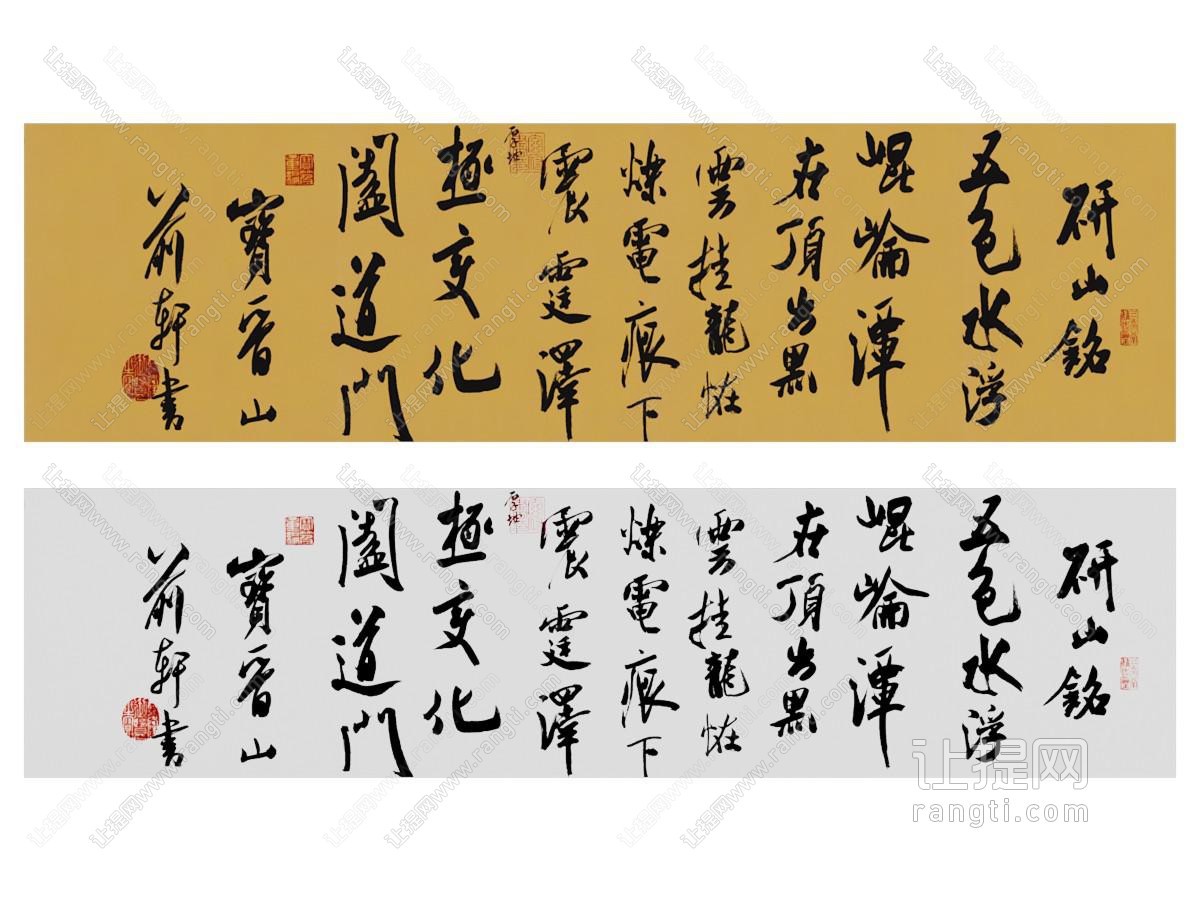 研山銘
五色水浮
崐崘潭
在頂出黑
雲挂龍恠
爍電痕下
震霆澤
厚坤
極變化
闔道門
寶晉山
前軒書
研山銘
五色水浮
崐崘潭
在頂出黑
雲挂龍恠
爍電痕下
震霆澤
厚坤
極變化
闔道門
寶晉山
前軒書
让提网
rangti.com